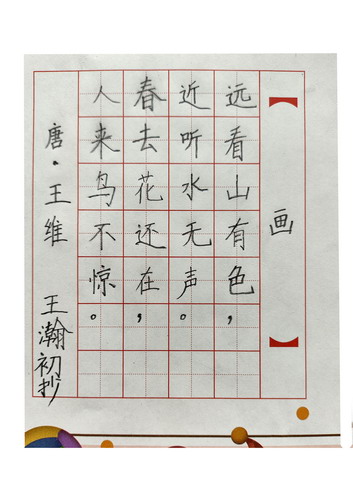 【画】
远看山有色，
近听水无声。
春去花还在，
人来鸟不惊。
唐·王维
王瀚初抄